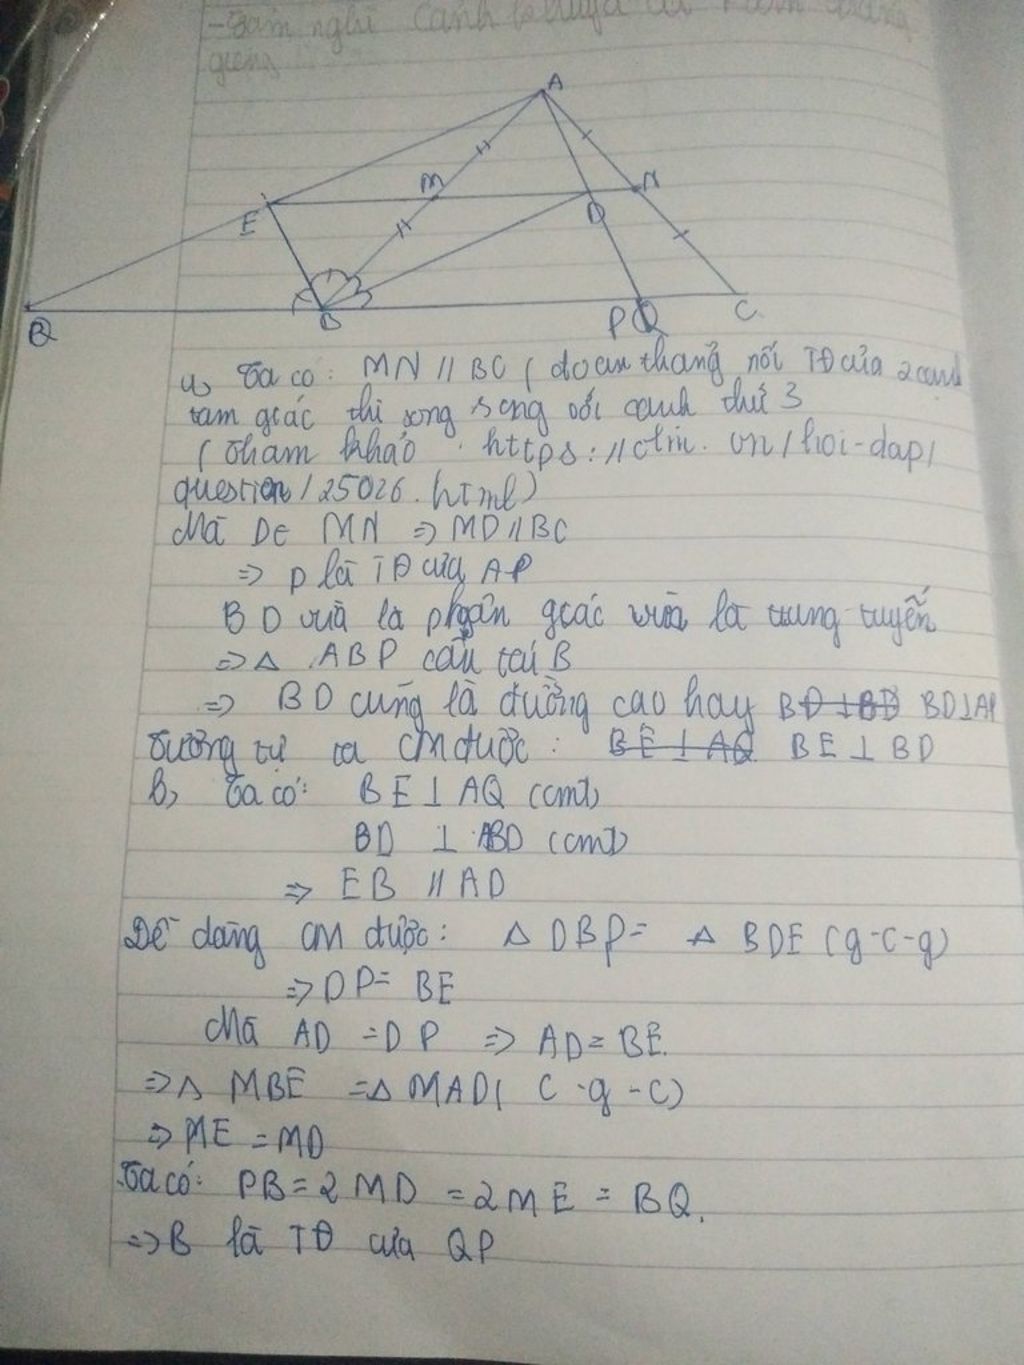 -Tam nghi Canh
A
M
N
E
D
B
P Q
C
Q
a, Ta có: MN // BC ( đoạn thẳng nối TĐ của 2 cạnh
tam giác thì song song với cạnh thứ 3
( Tham khảo : https://olm.vn/hoi-dap/
question/25026.html)
Mà D ∈ MN => MD // BC
=> D là TĐ của AP
BD vừa là phân giác vừa là trung tuyến
=> Δ ABP cân tại B
=> BD cũng là đường cao hay BD ⊥ BD BD ⊥ AP
Tương tự ta CM được : BE ⊥ AQ BE ⊥ BD
b, Ta có: BE ⊥ AQ (cmt)
BD ⊥ ABD (cmt)
=> EB // AD
Dễ dàng CM được: Δ DBP = Δ BDE (g-c-g)
=> DP = BE
Mà AD = DP => AD = BE.
=> Δ MBE = Δ MAD( C-g-C)
=> ME = MD
Ta có: PB = 2MD = 2ME = BQ.
=> B là TĐ của QP